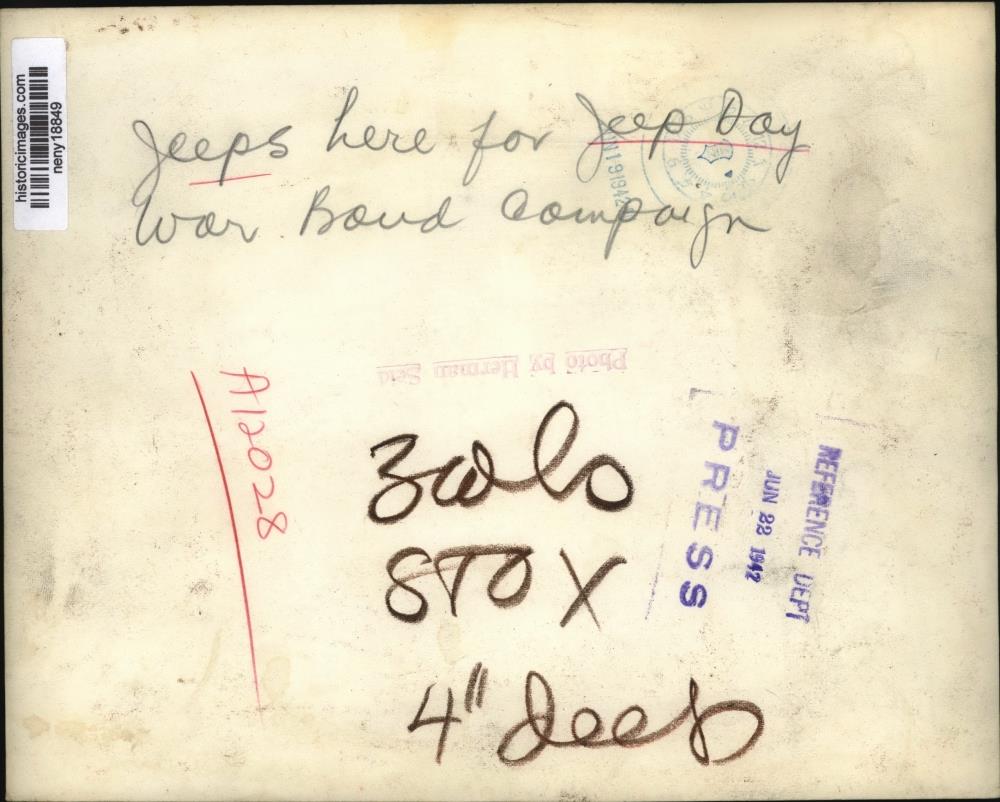 historicimages.com
neny18849
Jeeps here for Jeep Day
War Bond Campaign
N 19 1942
Photo by Herman Seid
A12028
3 col
STOX
4" deep
PRESS
JUN 22 1942
REFERENCE DEPT